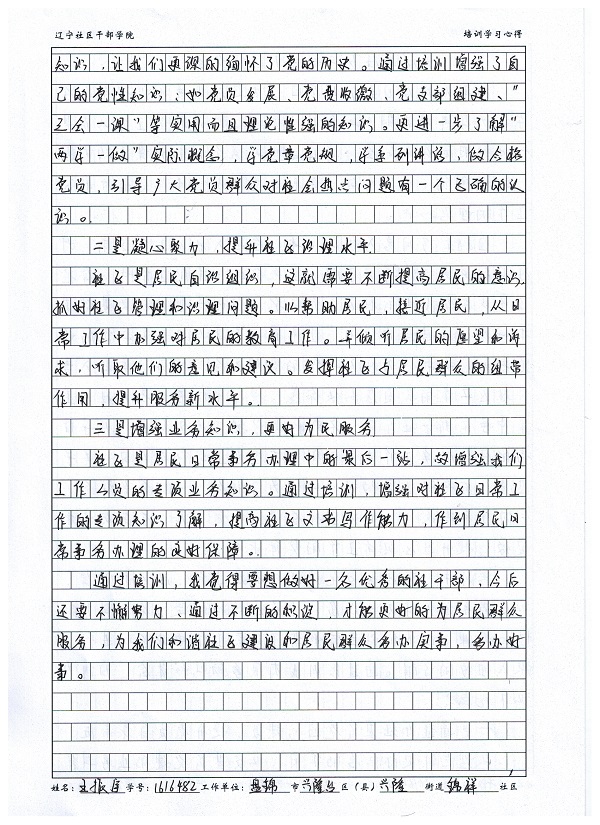 辽宁社区干部学院 培训学习心得
知识，让我们更深的缅怀了党的历史。通过培训增强了自
己的党性知识；如党员发展、党费收缴、党支部组建、“
三会一课”等实用而且理论性强的知识。更进一步了解“
两学一做”实际概念，学党章党规，学系列讲话，做合格
党员，引导广大党员群众对社会热点问题有一个正确的认
识。
二是凝心聚力，提升社区治理水平
社区是居民自治组织，这就需要不断提高居民的意识，
抓好社区管理和治理问题。以帮助居民，接近居民，从日
常工作中加强对居民的教育工作。并倾听居民的愿望和诉
求，听取他们的意见和建议。发挥社区与居民群众的纽带
作用，提升服务新水平。
三是增强业务知识，更好为民服务
社区是居民日常事务办理中的最后一站，故增强我们
工作人员的专项业务知识。通过培训，增强对社区日常工
作的专项知识了解，提高社区文书写作能力，作到居民日
常事务办理的良好保障。
通过培训，我觉得要想做好一名优秀的社干部，今后
还要不懈努力、通过不断的积淀，才能更好的为居民群众
服务，为我们和谐社区建设和居民群众务办实事，务办好
事。
姓名：王振 学号：1616482 工作单位：盘锦 市 兴隆台 区（县）兴隆 街道 锦祥 社区